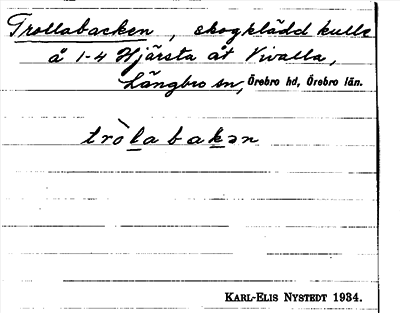 Trollabacken, skogklädd kulle
å 1-4 Hjärsta åt Vivalla,
Längbro sn, Örebro hd, Örebro län.
tròlabakən
KARL-ELIS NYSTEDT 1934.